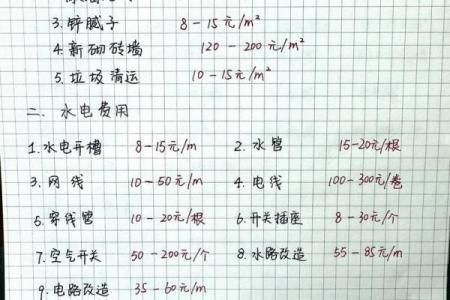 3. 铲腻子 8-15元/m²
4. 新砌砖墙 120-200元/m²
5. 垃圾清运 10-15元/m²
二、水电费用
1. 水电开槽 8-15元/m 2. 水管 15-20元/根
3. 网线 10-50元/m 4. 电线 100-300元/卷
5. 穿线管 10-20元/根 6. 开关插座 8-30元/个
7. 空气开关 50-200元/个 8. 水路改造 55-85元/m
9. 电路改造 35-60元/m